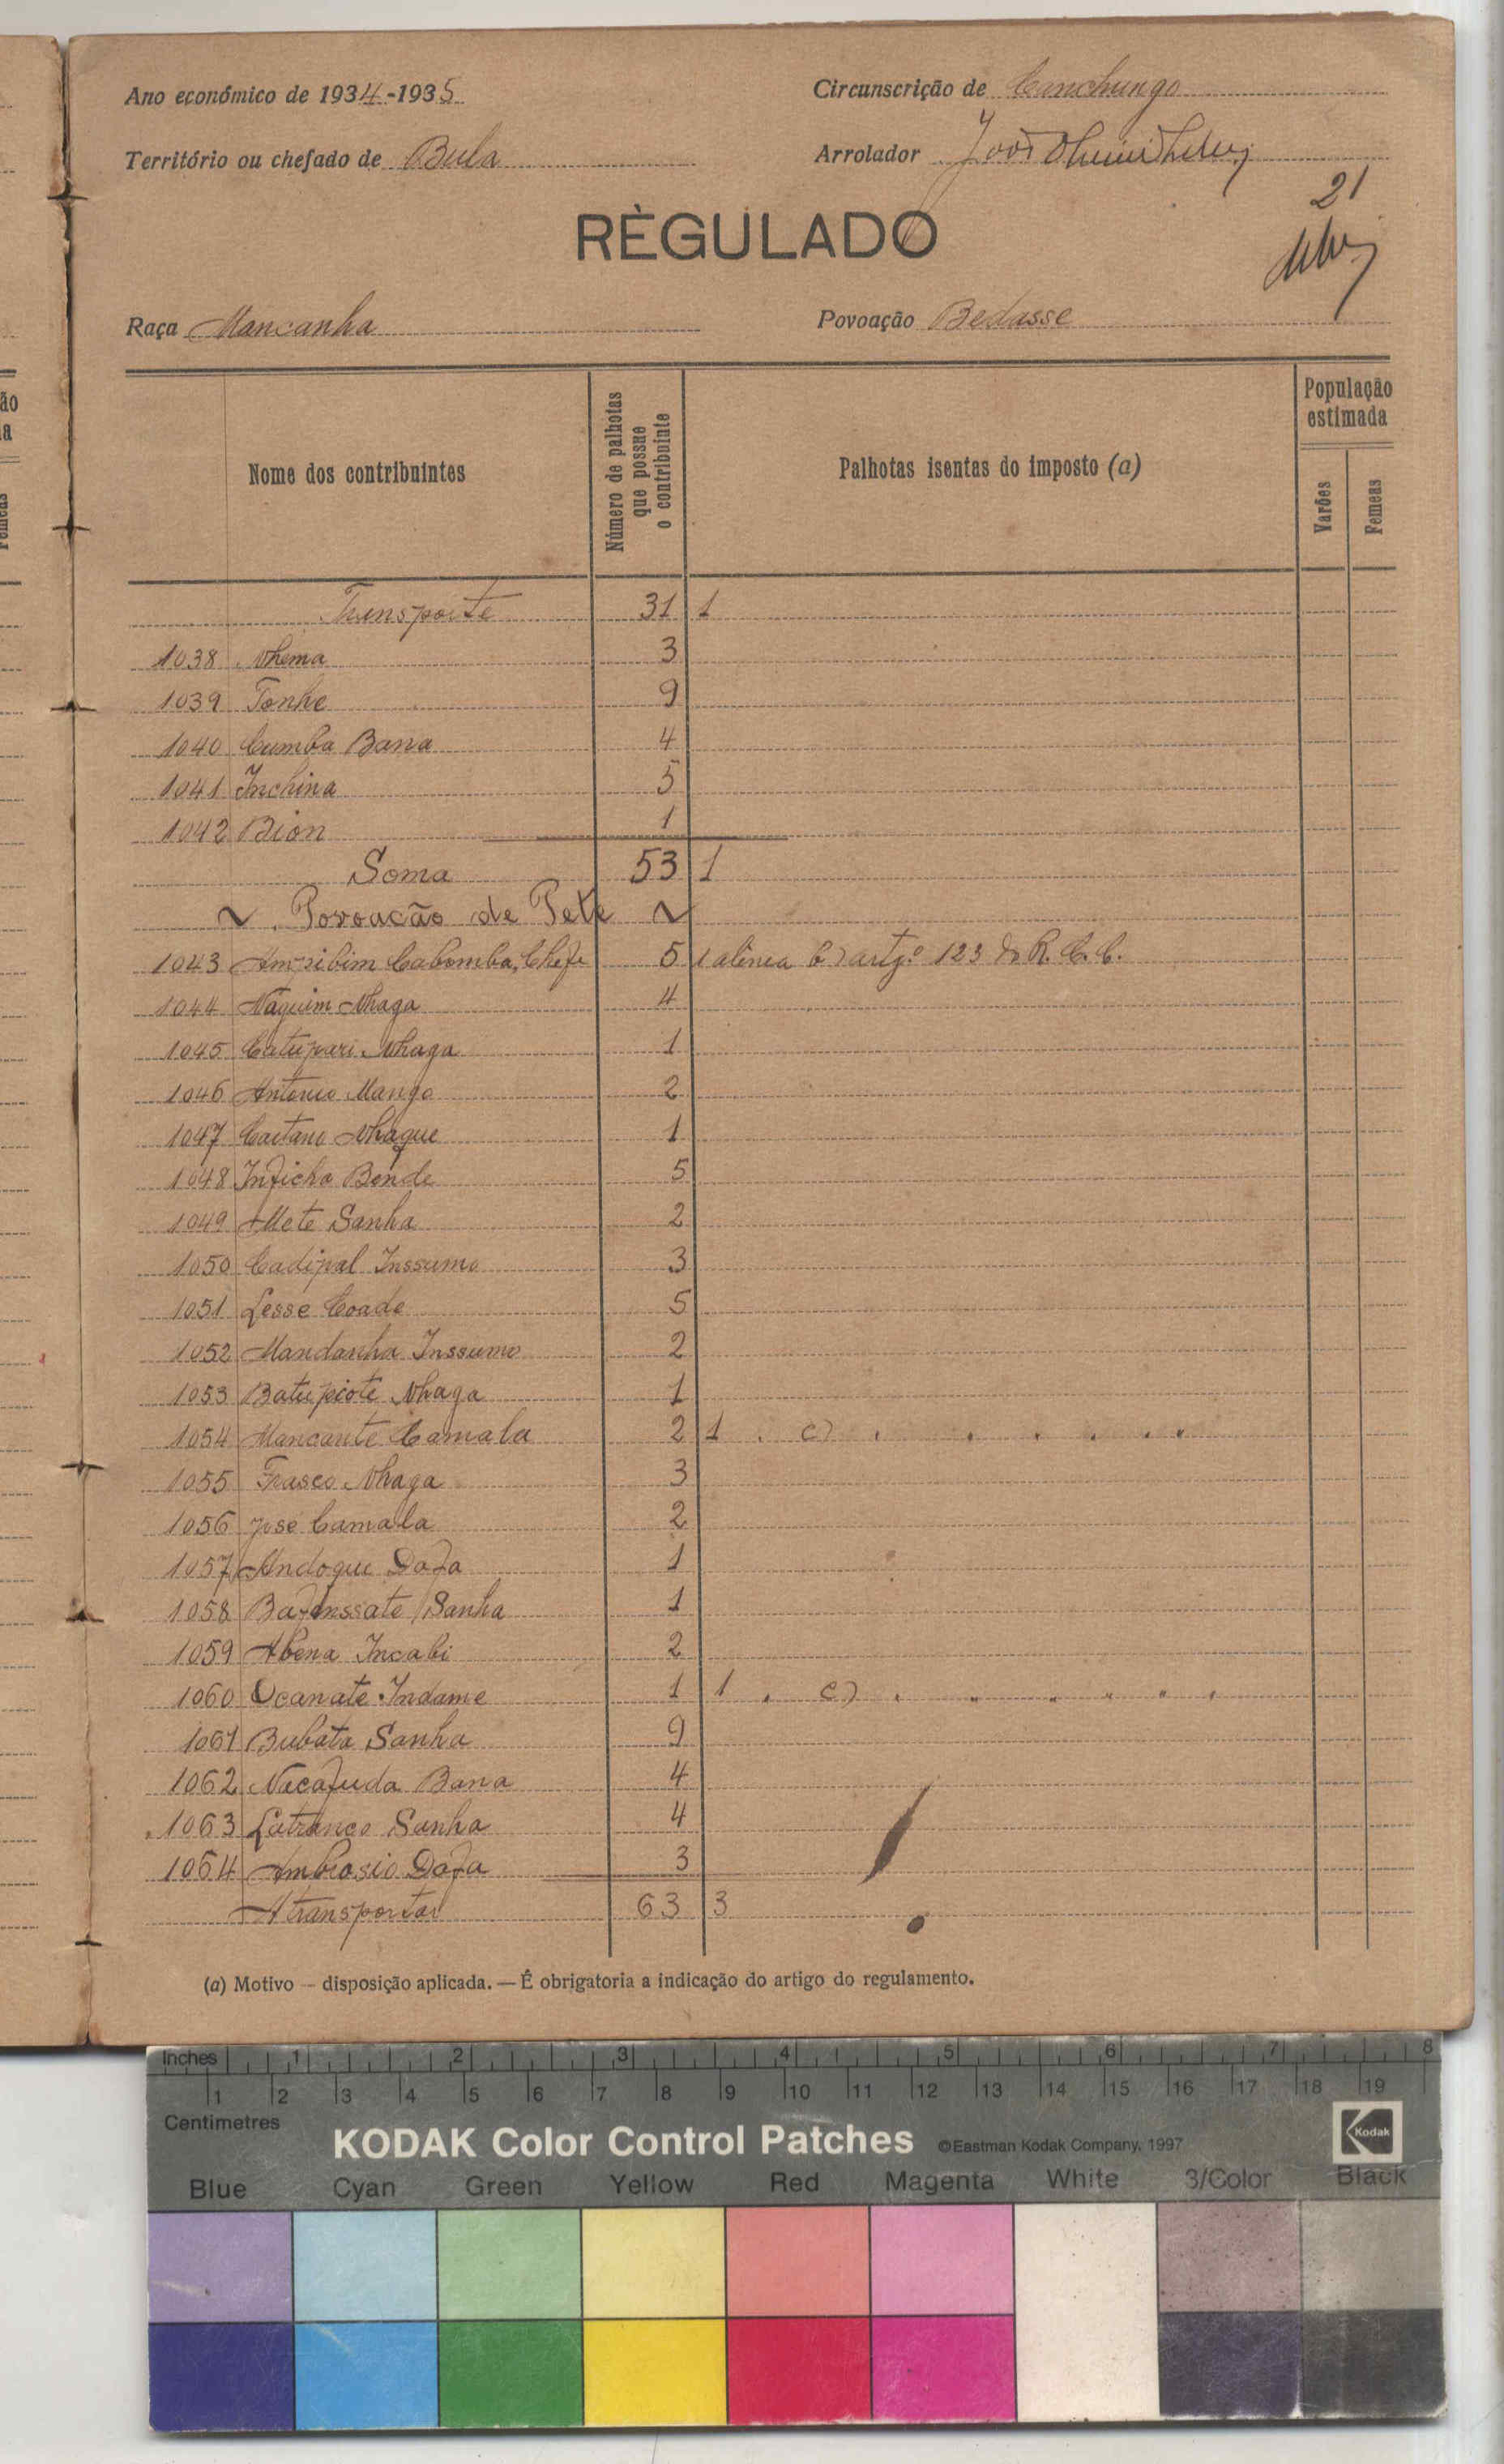 Ano económico de 1934-1935
Circunscrição de Canchungo
Território ou chefado de Bula
Arrolador João
21
RÈGULADO
Raça Mancanha
Povoação Bedasse
Nome dos contribuintes
Número de palhotas que possue o contribuinte
Palhotas isentas do imposto (a)
População estimada
Varões
Femeas
Transporte 31 1
1038 Nhema 3
1039 Tonhe 9
1040 Cumba Bana 4
1041 Inchina 5
1042 Bion 1
Soma 53 1
~ Povoacão de Pete ~
1043 Cabomba, Chefe 5 1 alinea b) artgº 123 do R. C. C.
1044 Naguim Nhaga 4
1045 Catupari Nhaga 1
1046 Antonio Mango 2
1047 Caetano Nhague 1
1048 Inficha Bende 5
1049 Mete Sanha 2
1050 Cadipal Inssumo 3
1051 Lesse Coade 5
1052 Mandanha Inssumo 2
1053 Batupiote Nhaga 1
1054 Mancante Camala 2 1 . c) . . . . . .
1055 Frasco Nhaga 3
1056 José Camala 2
1057 Andoque Dafa 1
1058 Sanha 1
1059 Abena Incabi 2
1060 Ocanate Indame 1 1 . c) . " " " " "
1061 Bubata Sanha 9
1062 Nacafuda Bana 4
1063 Latranco Sanha 4
1064 Ambrosio Dafa 3
A transportar 63 3
(a) Motivo — disposição aplicada. — É obrigatoria a indicação do artigo do regulamento.
Inches 1 2 3 4 5 6 7 8
1 2 3 4 5 6 7 8 9 10 11 12 13 14 15 16 17 18 19
Centimetres
KODAK Color Control Patches ©Eastman Kodak Company, 1997 Kodak
Blue Cyan Green Yellow Red Magenta White 3/Color Black